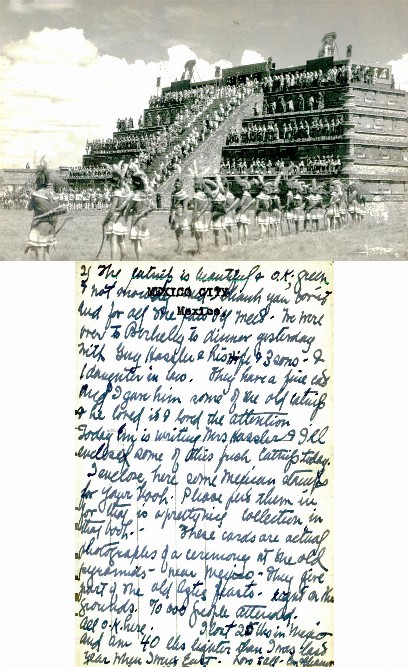 2) The catnip is beautiful & O.K. green
& not
MEXICO CITY
Mexico
thank you
and for all the
We were
over to Berkelly to dinner yesterday
with Guy Hassler & his wife & 3 sons - &
1 daughter in law. They have a fine cat
and I gave him some of the old catnip
& he loved it & loved the attention
Today Em is writing Mrs Hassler & I'll
enclose some of this fresh catnip today.
I enclose here some Mexican stamps
for your book. Please put them in
for that is a pretty nice collection in
that book. - These cards are actual
photographs of a ceremony at the old
pyramids - near Mexico. They give
part of the old Aztec feasts - right on the
grounds. 70 000 people attended.
All O.K. here. I lost 25 lbs in Mexico
and am 40 lbs lighter than I was last
year when I was East.